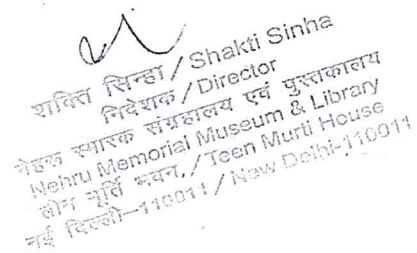 शक्ति सिन्हा / Shakti Sinha
निदेशक / Director
नेहरू स्मारक संग्रहालय एवं पुस्तकालय
Nehru Memorial Museum & Library
तीन मूर्ति भवन, / Teen Murti House
नई दिल्ली-110011 / New Delhi-110011